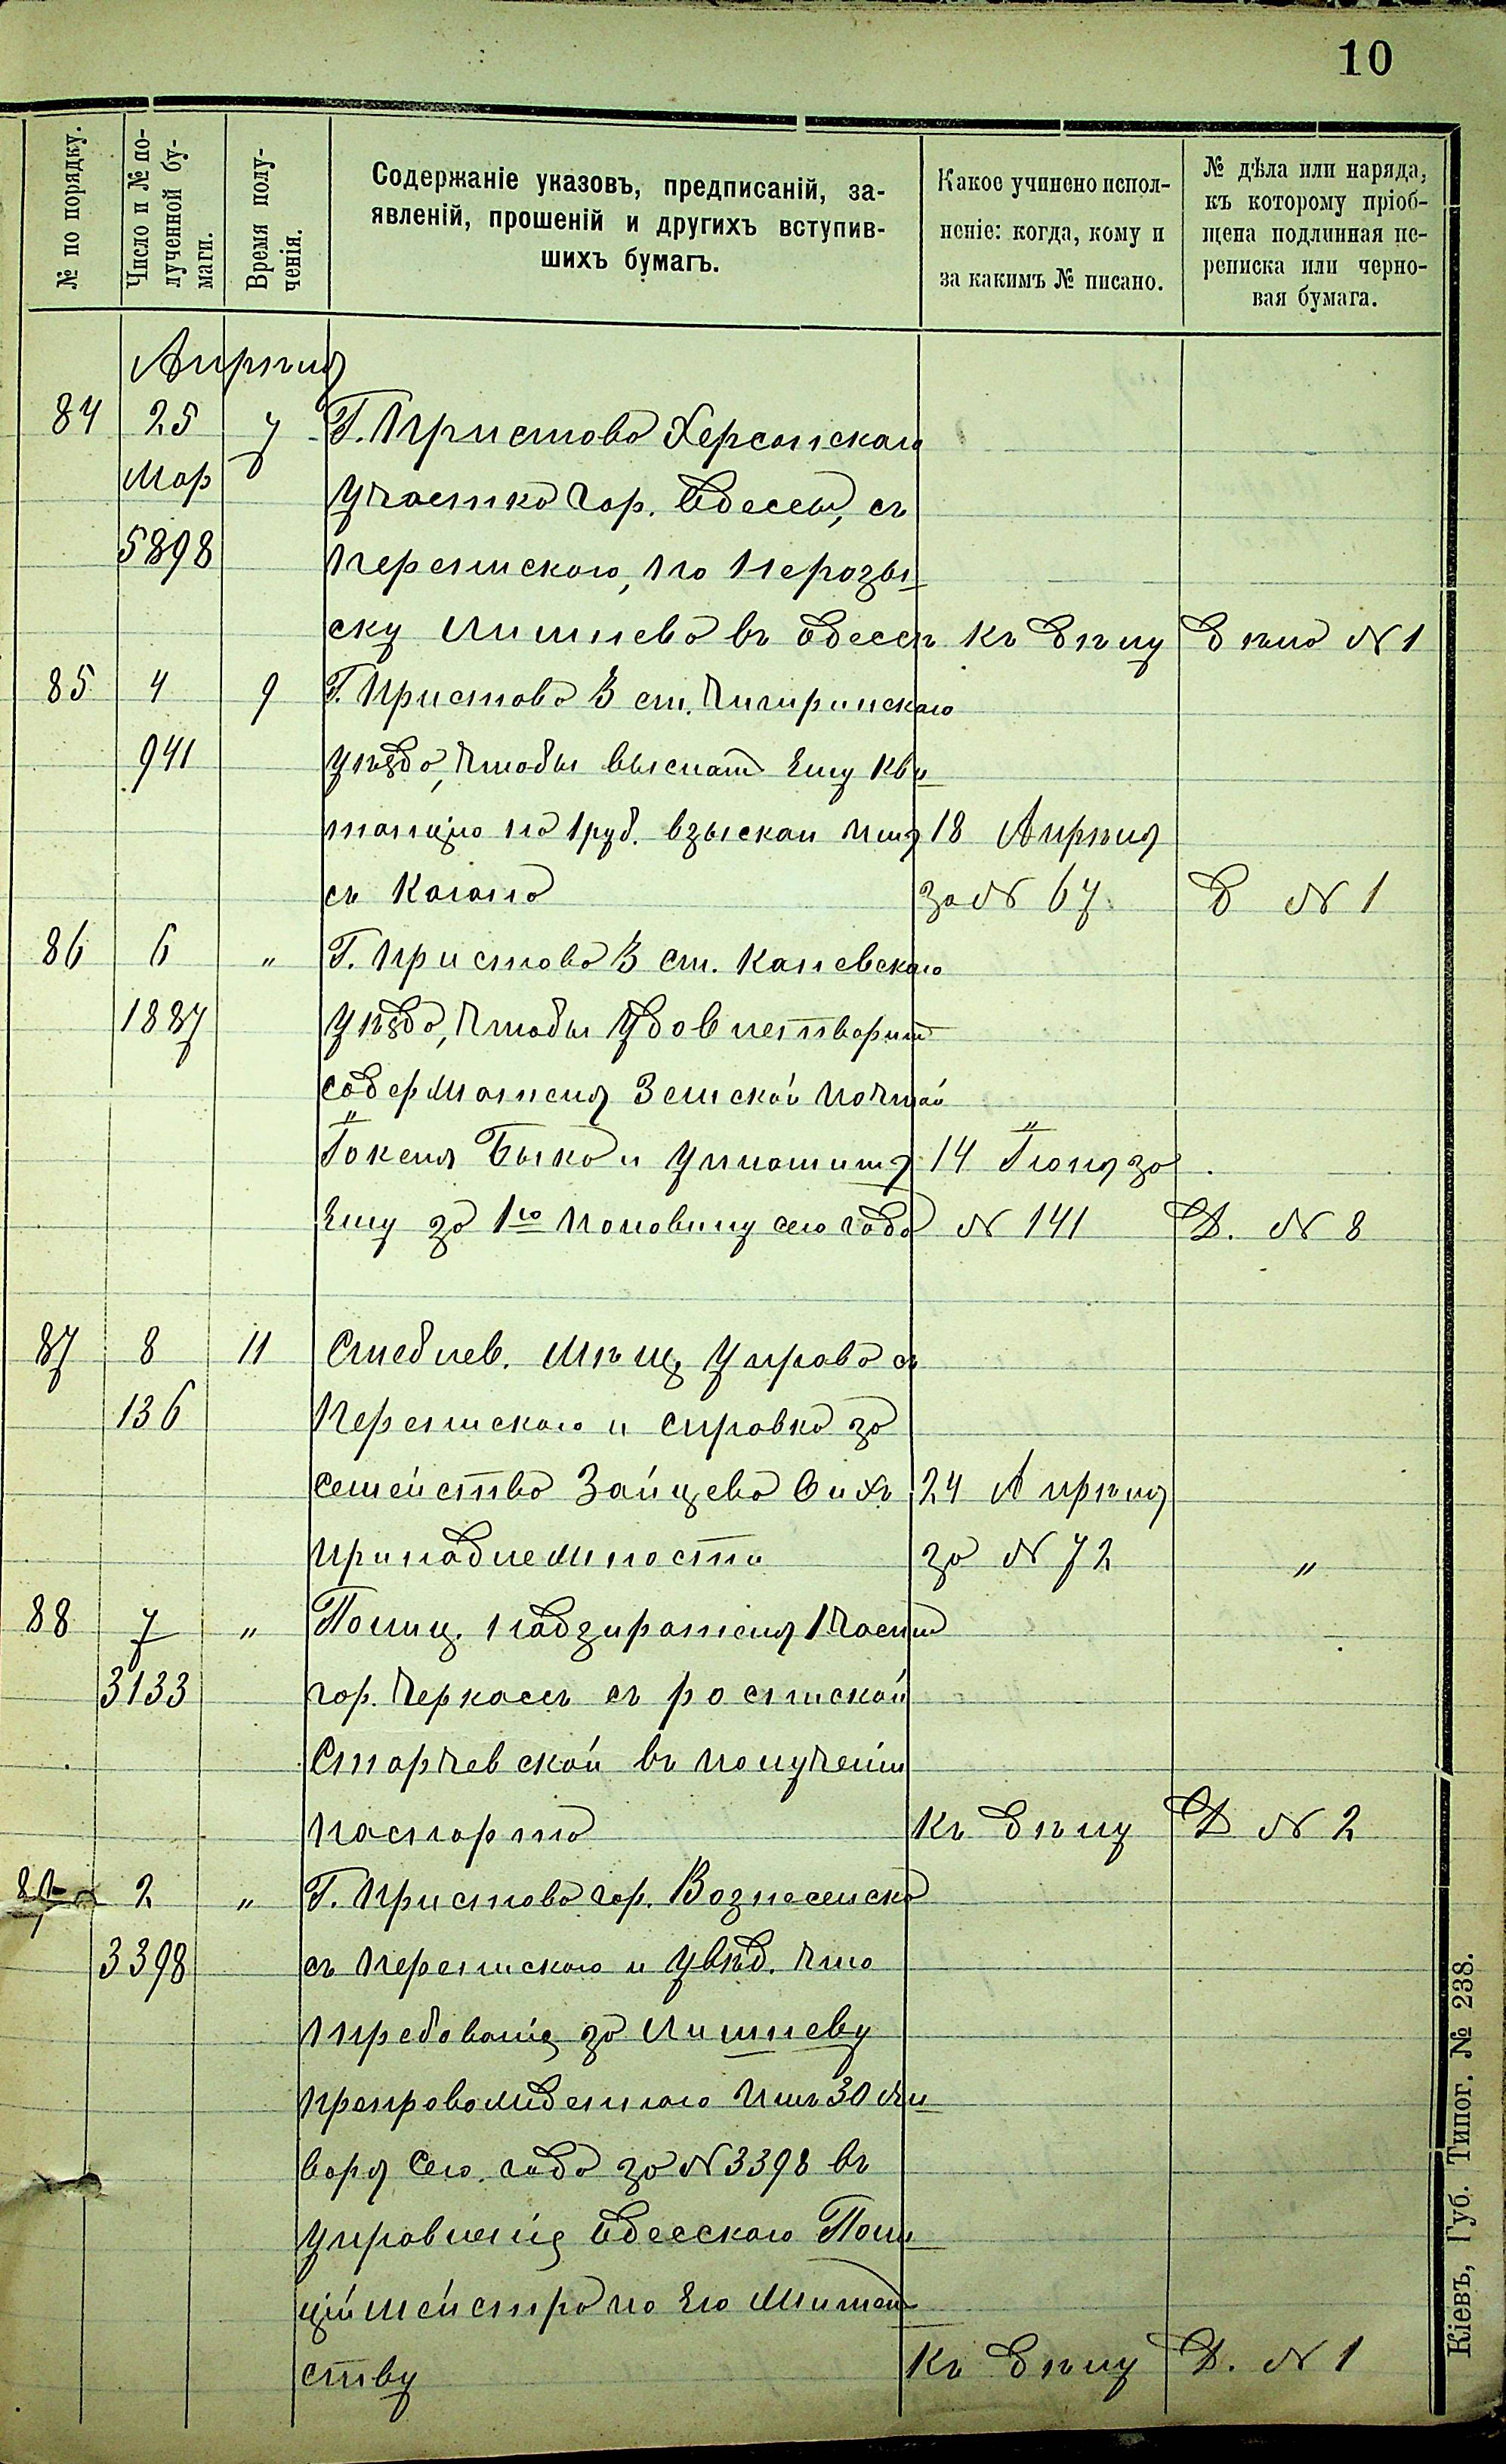 10
№ по порядку.
Число и № по-
лученной бу-
маги.
Время полу-
ченія.
Содержаніе указовъ, предписаній, за-
явленій, прошеній и другихъ вступив-
шихъ бумагъ.
Какое учинено испол-
неніе: когда, кому и
за какимъ № писано.
№ дѣла или наряда,
къ которому пріоб-
щена подлинная пе-
реписка или черно-
вая бумага.
Апрѣля
84 25 7 Г. Пристава Херсонскаго
Мар участка гор. Одессы, съ
5898 перепискою, по нерозы-
ску Лишнева въ Одессѣ къ дѣлу дѣло № 1
85 4 9 Г. Пристава 3 ст. Чигиринскаго
941 уѣзда, чтобы выслать ему кви-
танцію на 1 руб. взыскан имъ 18 Апрѣля
съ Кагана за № 67. Д № 1
86 6 " Г. Пристава 3 ст. Каневскаго
1887 уѣзда, чтобы удовлетворить
содержателя Земской почтой
Гокеля Быка и уплатить 14 Іюня за
ему за 1ю половину сего года № 141 Д. № 8
87 8 11 Стеблев. Мѣщ. Управа съ
136 перепискою и справка за
семейство Зайцева о ихъ 24 Апрѣля
принадлежности за № 72 "
88 7 " Полиц. надзирателя 1 части
3133 гор. Черкассъ съ роспиской
Старчевской въ полученіи
паспорта къ дѣлу Д № 2
89 2 " Г. Пристава гор. Вознесенска
3398 съ перепискою и увѣд. что
требованія за Лишневу
препровожденного имъ 30 Ян-
варя сего года за № 3398 въ
управленія Одесскаго Поли-
ційместра по его жітель-
ству къ дѣлу Д. № 1
Кіевъ, Губ. Типог. № 238.